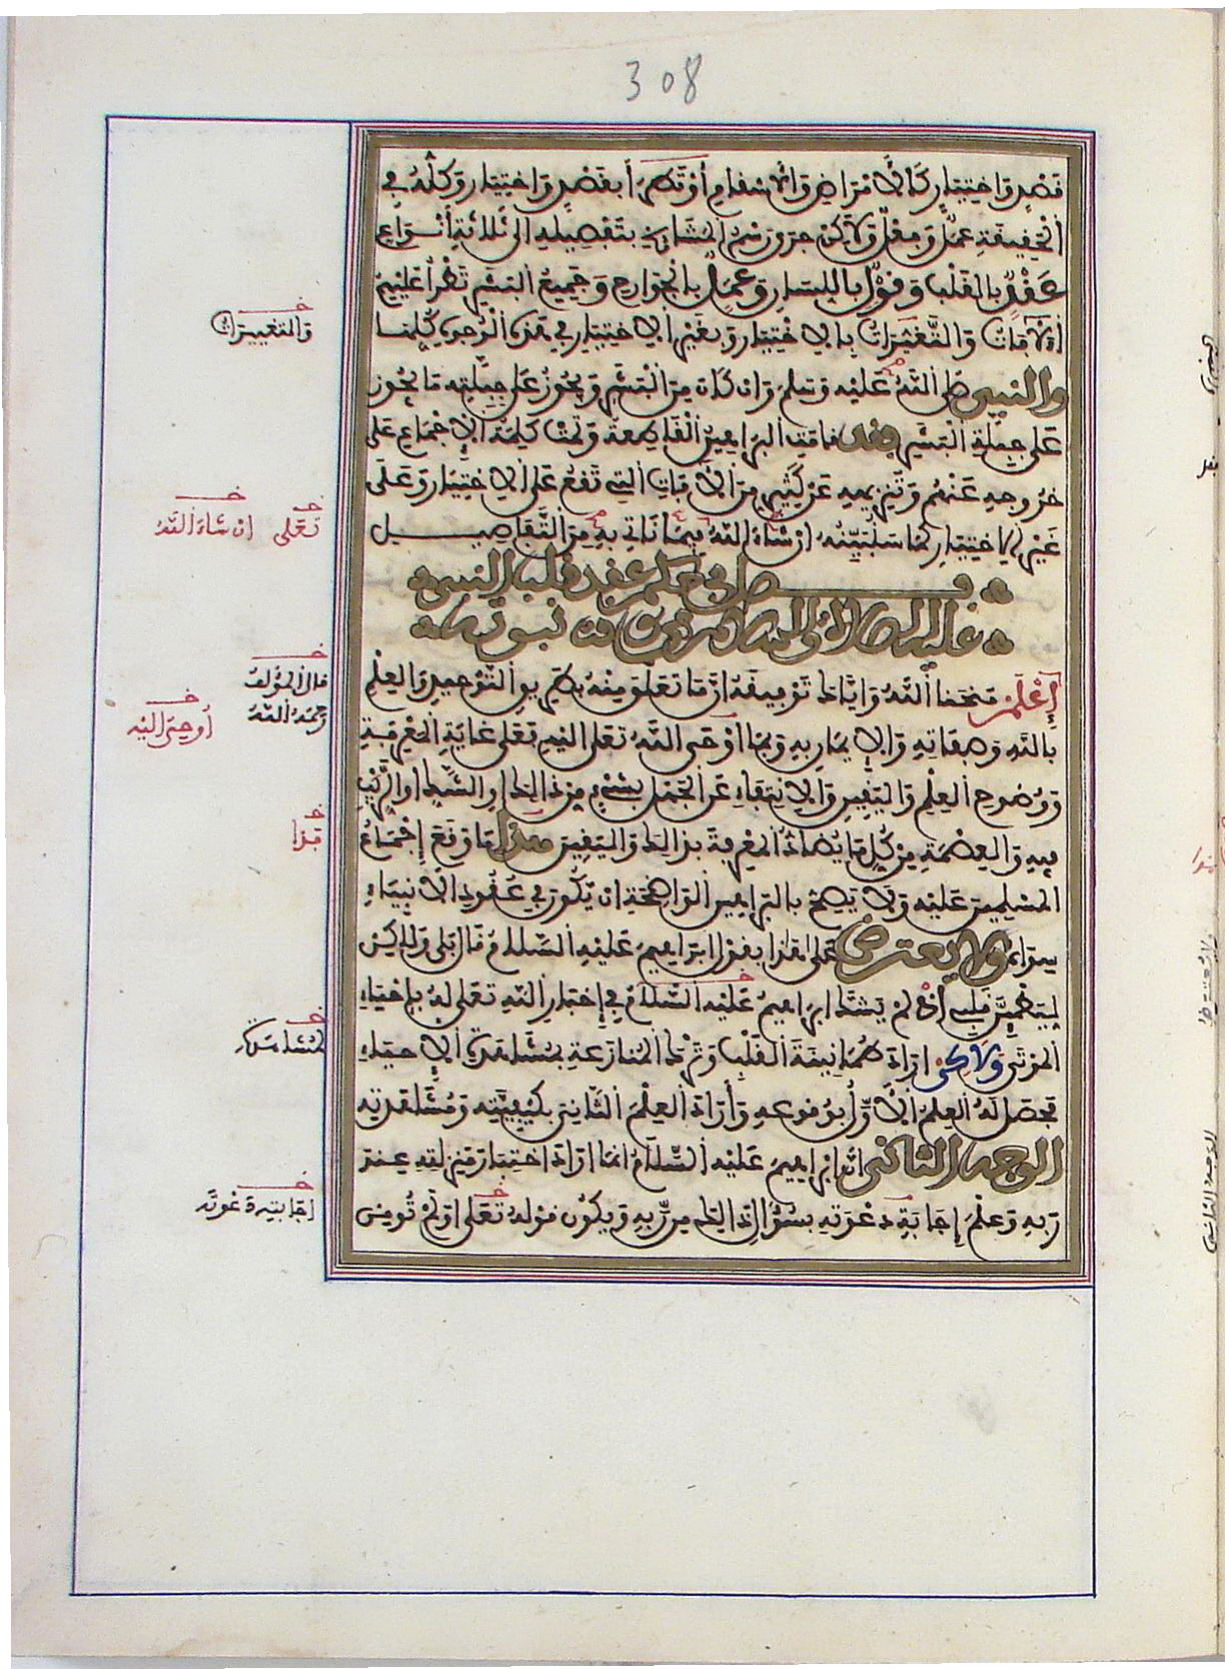 308
قَصْدٍ وَاخْتِيَارٍ كَالْأَمْرَاضِ وَالْأَسْقَامِ أَوْ تَطْرَأَ بِقَصْدٍ وَاخْتِيَارٍ وَكُلُّهُ فِي
الْحَقِيقَةِ عَمَلٌ وَفِعْلٌ وَلَاكِنْ جَرَى رَسْمُ الْمَشَايِخِ بِتَفْصِيلِهِ إِلَى ثَلَاثَةِ أَنْوَاعٍ
عَقْدٌ بِالْقَلْبِ وَقَوْلٌ بِاللِّسَانِ وَعَمَلٌ بِالْجَوَارِحِ وَجَمِيعُ الْبَشَرِ تَطْرَأُ عَلَيْهِمُ
الْآفَاتُ وَالتَّغَيُّرَاتُ بِالِاخْتِيَارِ وَبِغَيْرِ الِاخْتِيَارِ فِي هَذِهِ الْوُجُوهِ كُلِّهَا
وَالنَّبِيُّ صَلَّى اللَّهُ عَلَيْهِ وَسَلَّمَ وَإِنْ كَانَ مِنَ الْبَشَرِ وَيَجُوزُ عَلَى جِبِلَّتِهِ مَا يَجُوزُ
عَلَى جِبِلَّةِ الْبَشَرِ فَقَدْ قَامَتِ الْبَرَاهِينُ الْقَاطِعَةُ وَتَمَّتْ كَلِمَةُ الْإِجْمَاعِ عَلَى
خُرُوجِهِ عَنْهُمْ وَتَنْزِيهِهِ عَنْ كَثِيرٍ مِنَ الْآفَاتِ الَّتِي تَقَعُ عَلَى الِاخْتِيَارِ وَعَلَى
غَيْرِ الِاخْتِيَارِ كَمَا سَنُبَيِّنُهُ إِنْ شَاءَ اللَّهُ فِيمَا نَأْتِي بِهِ مِنَ التَّفَاصِيلِ
فصل في حكم عقد قلب النبي
عليه الصلاة والسلام من وقت نبوته
اعْلَمْ مَنَحَنَا اللَّهُ وَإِيَّاكَ تَوْفِيقَهُ أَنَّ مَا تَعَلَّقَ مِنْهُ بِطَرِيقِ التَّوْحِيدِ وَالْعِلْمِ
بِاللَّهِ وَصِفَاتِهِ وَالْإِيمَانِ بِهِ وَبِمَا أَوْحَى اللَّهُ تَعَلَى إِلَيْهِ فَعَلَى غَايَةِ الْمَعْرِفَةِ
وَوُضُوحِ الْعِلْمِ وَالْيَقِينِ وَالِانْتِفَاءِ عَنِ الْجَهْلِ بِشَيْءٍ مِنْ ذَالِكَ أَوِ الشَّكِّ أَوِ الرَّيْبِ
فِيهِ وَالْعِصْمَةِ مِنْ كُلِّ مَا يُضَادُّ الْمَعْرِفَةَ بِذَالِكَ وَالْيَقِينَ هذا مَا وَقَعَ إِجْمَاعُ
الْمُسْلِمِينَ عَلَيْهِ وَلَا يَصِحُّ بِالْبَرَاهِينِ الْوَاضِحَةِ أَنْ يَكُونَ فِي عُقُودِ الْأَنْبِيَاءِ
سِوَاهُ وَلَا يُعْتَرَضُ عَلَى هَذَا بِقَوْلِ إِبْرَاهِيمَ عَلَيْهِ السَّلَامُ قَالَ بَلَى وَلَاكِنْ
لِيَطْمَئِنَّ قَلْبِي إِذْ لَمْ يَشُكَّ إِبْرَاهِيمُ عَلَيْهِ السَّلَامُ فِي إِخْبَارِ اللَّهِ تَعَلَى لَهُ بِإِحْيَاءِ
الْمَوْتَى وَلَاكِنْ أَرَادَ طُمَأْنِينَةَ الْقَلْبِ وَتَرْكَ الْمُنَازَعَةِ بِمُشَاهَدَةِ الْإِحْيَاءِ
فَحَصَلَ لَهُ الْعِلْمُ الْأَوَّلُ بِوُقُوعِهِ وَأَرَادَ الْعِلْمَ الثَّانِيَ بِكَيْفِيَّتِهِ وَمُشَاهَدَتِهِ
الوجه الثاني أَنَّ إِبْرَاهِيمَ عَلَيْهِ السَّلَامُ إِنَّمَا أَرَادَ اخْتِبَارَ مَنْزِلَتِهِ عِنْدَ
رَبِّهِ وَعِلْمَ إِجَابَةِ دَعْوَتِهِ بِسُؤَالِ ذَالِكَ مِنْ رَبِّهِ وَيَكُونُ قَوْلُهُ تَعَلَى أَوَلَمْ تُومِنْ
وَالتَّغْيِيرَاتُ
تَعَلَى
إِنْ شَاءَ اللَّهُ
قَالَ الْمُؤَلِّفُ
رَحِمَهُ اللَّهُ
أُوحِيَ إِلَيْهِ
هَذَا
لِمُشَاهَدَةِ
إِجَابَتِهِ دَعْوَتَهُ